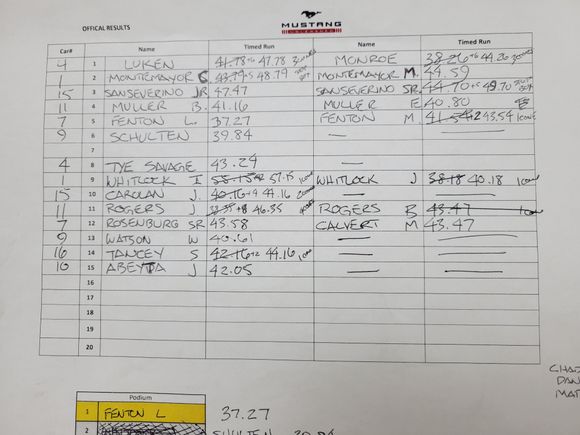 OFFICAL RESULTS
MUSTANG
Car# Name Timed Run Name Timed Run
4 1 LUKEN 41.78+6 47.78 3 CONES MONROE 38.26+6 44.26
1 2 MONTEMAYOR C. 43.79+5 48.79 MONTEMAYOR M. 44.59
15 3 SANSEVERINO JR 47.47 SANSEVERINO SR. 44.70+5 49.70
11 4 MULLER B. 41.16 MULLER E 40.80
7 5 FENTON L. 37.27 FENTON M 41.54+2 43.54 1 CONE
9 6 SCHULTEN 39.84 —
7
4 8 TYE SAVAGE 43.24 —
1 9 WHITLOCK I 57.15 1 CONE WHITLOCK J 38.18 40.18 1 CONE
15 10 CAROLAN J. 40.16+4 44.16 2 CONES —
11 11 ROGERS J +8 46.35 ROGERS B 43.47
7 12 ROSENBURG SR 43.58 CALVERT M 43.47
9 13 WATSON W 40.61 —
16 14 TANCEY S 42.16+2 44.16 1 CONE —
10 15 ABEYTA J 42.05 —
16
17
18
19
20
CHAD
DAN
MAT
Podium
1 FENTON L 37.27
2 SHULTEN